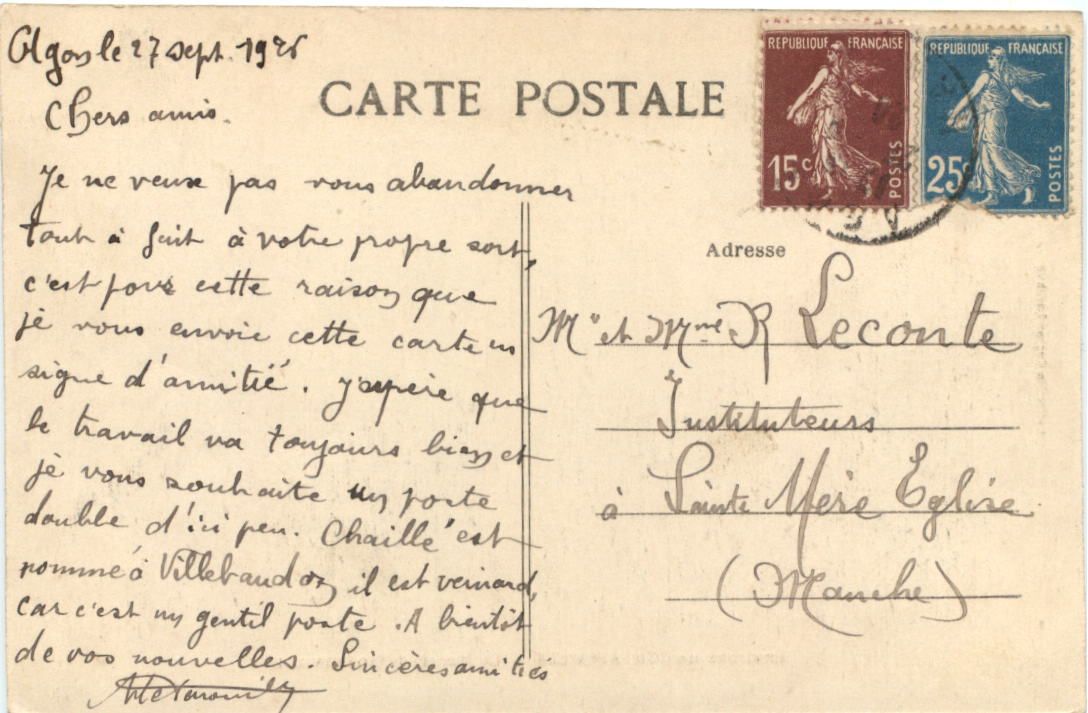 Agon le 27 sept. 1926
CARTE POSTALE
REPUBLIQUE FRANÇAISE
15c
POSTES
REPUBLIQUE FRANÇAISE
25c
POSTES
Chers amis.
Je ne veux pas vous abandonner
tout à fait à votre propre sort,
c'est pour cette raison que
je vous envoie cette carte en
signe d'amitié. J'espère que
le travail va toujours bien et
je vous souhaite un poste
double d'ici peu. Chaillé est
nommé à Villebaudon, il est veinard,
car c'est un gentil poste. A bientôt
de vos nouvelles. Sincères amitiés
Adresse
Mr et Mme R Leconte
Instituteurs
à Sainte Mère Eglise
(Manche)